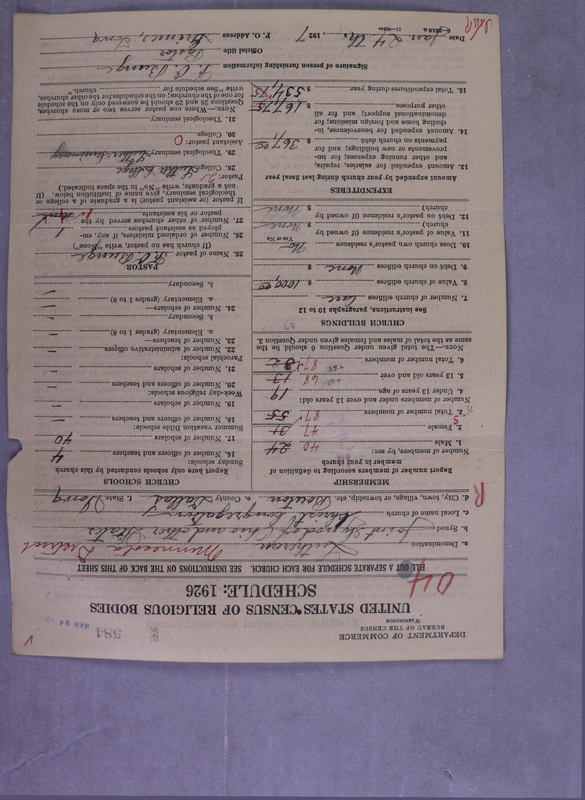 DEPARTMENT OF COMMERCE
BUREAU OF THE CENSUS
WASHINGTON
581
JAN 24
UNITED STATES CENSUS OF RELIGIOUS BODIES
SCHEDULE: 1926
04
FILL OUT A SEPARATE SCHEDULE FOR EACH CHURCH. SEE INSTRUCTIONS ON THE BACK OF THIS SHEET
Minnesota District
a. Denomination Lutheran
b. Synod Joint Synod of Ohio and Other States
c. Local name of church Christ Congregation
d. City, town, village, or township, etc. Benton e. County Dallas f. State Iowa
MEMBERSHIP
Report number of members according to definition of member in your church
Number of members, by sex:
1. Male 24 40
2. Female 31 47
3. Total number of members 55 87
Number of members under and over 13 years old:
4. Under 13 years of age 19
5. 13 years old and over 13 68
6. Total number of members 87
NOTE.—The total given under Question 6 should be the same as the total of males and females given under Question 3.
CHURCH BUILDINGS
See instructions, paragraphs 10 to 12
7. Number of church edifices One
8. Value of church edifices $ 1000.00
9. Debt on church edifices $ None
10. Does church own pastor's residence No
Yes or No
11. Value of pastor's residence (if owned by church) $ None
12. Debt on pastor's residence (if owned by church) $ None
EXPENDITURES
Amount expended by your church during last fiscal year
13. Amount expended for salaries, repairs, and other running expenses; for improvements or new buildings; and for payments on church debt $ 367.00
14. Amount expended for benevolences, including home and foreign missions; for denominational support; and for all other purposes $ 167.75
15. Total expenditures during year $ 534.75
CHURCH SCHOOLS
Report here only schools conducted by this church
Sunday schools:
16. Number of officers and teachers 4
17. Number of scholars 40
Summer vacation Bible schools:
18. Number of officers and teachers
19. Number of scholars
Week-day religious schools:
20. Number of officers and teachers
21. Number of scholars
Parochial schools:
22. Number of administrative officers
23. Number of teachers—
a. Elementary (grades 1 to 8)
b. Secondary
24. Number of scholars—
a. Elementary (grades 1 to 8)
b. Secondary
PASTOR
25. Name of pastor
(If church has no pastor, write "None")
26. Number of ordained ministers, if any, employed as assistants to pastor
27. Number of other churches served by the pastor or his assistants
If pastor (or assistant pastor) is a graduate of a college or theological seminary, give name of institution below. (If not a graduate, write "No" in the space indicated.)
Pastor:
28. College Luther College
29. Theological seminary Luther Seminary
Assistant pastor: 0
30. College
31. Theological seminary
NOTE.—Where one pastor serves two or more churches, Questions 28 and 29 should be answered only on the schedule for one of the churches; on the schedules for the other churches, write "See schedule for church."
Signature of person furnishing information
Official title Pastor
Date Jan 24 th, 1927 P. O. Address Grimes, Iowa